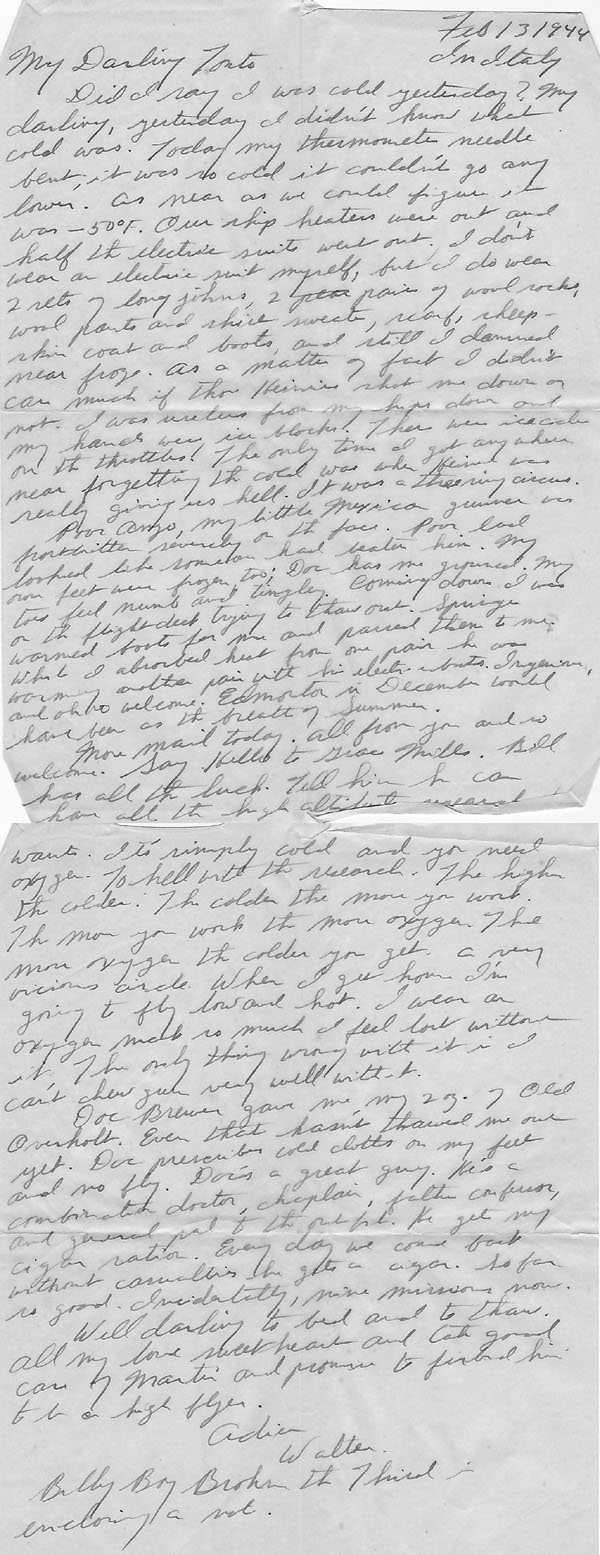 Feb 13 1944
In Italy
My Darling Tonto
Did I say I was cold yesterday? My
darling, yesterday I didn't know what
cold was. Today my thermometer needle
bent, it was so cold it couldn't go any
lower. As near as we could figure it
was -50°F. Our ship heaters were out and
half the electric suits went out. I don't
wear an electric suit myself, but I do wear
2 sets of long johns, 2 pairs of wool socks,
wool pants and shirt sweater, scarf, sheep-
skin coat and boots, and still I damned
near froze. As a matter of fact I didn't
care much if those Heinies shot me down or
not. I was useless from my hips down and
my hands were ice blocks. There were icicles
on the throttles. The only time I got anywhere
near forgetting the cold was when Heinie was
really giving us hell. It was a three ring circus.
Poor Ango, my little Mexican gunner was
frostbitten severely on the face. Poor lad
looked like someone had beaten him. My
own feet were frozen, too; Doc has me grounded. My
toes feel numb and tingley. Coming down I was
on the flight deck trying to thaw out. Springe
warmed boots for me and passed them to me.
While I absorbed heat from one pair he was
warming another pair with his electric boots. Ingenious,
and oh so welcome. Edmonton in December would
have been as the breath of Summer.
More mail today. All from you and so
welcome. Say Hello to Grace Mills. Bill
has all the luck. Tell him he can
have all the high altitude research
wants. It's simply cold and you need
oxygen. To hell with the research. The higher
the colder. The colder the more you work.
The more you work the more oxygen. The
more oxygen the colder you get. A very
vicious circle. When I get home I'm
going to fly low and hot. I wear an
oxygen mask so much I feel lost without
it. The only thing wrong with it is I
can't chew gum very well with it.
Doc Brewer gave me my 2 oz. of Old
Overholt. Even that hasn't thawed me out
yet. Doc prescribes cold cloths on my feet
and no fly. Doc's a great guy. He's a
combination doctor, chaplain, father confessor,
and general pal to the outfit. He gets my
cigar ration. Every day we come back
without casualties he gets a cigar. So far
so good. Incidentally, nine missions now.
Well darling to bed and to thaw.
All my love sweetheart and take good
care of Martin and promise to forbid him
to be a high flyer.
Adios
Walter.
Billy Boy Broken the Third is
enclosing a note.